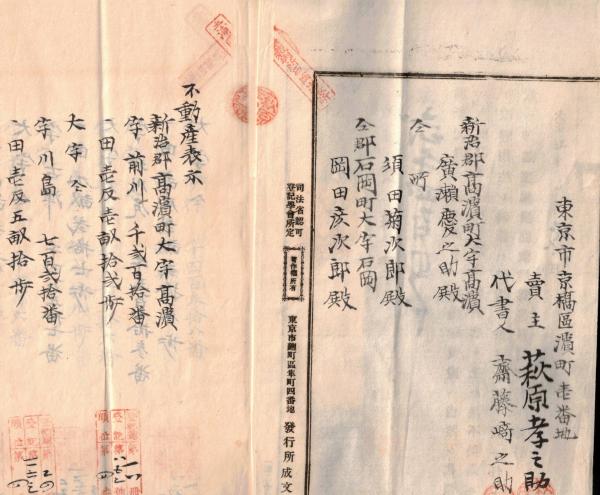 東京市京橋區濱町壱番地
賣主 萩原孝之助
代書人 齋藤﨑之助
新治郡高濱町大字高濱
廣瀬慶之助殿
仝所
須田菊次郎殿
仝郡石岡町大字石岡
岡田彦次郎殿
司法省認可
登記學會所定
著作權所有
東京市麹町區隼町四番地
發行所成文
不動産表示
新治郡高濱町大字高濱
字前川 千弐百拾番
一田壱反壱畝拾弐歩
大字仝
字川島 七百弐拾番
一田壱反五畝拾歩